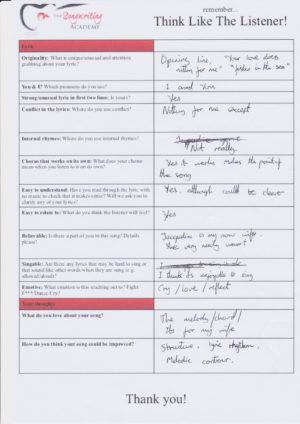 remember...
THE Songwriting
ACADEMY
Think Like The Listener!
Lyric
Originality: What is unique/unusual and attention
grabbing about your lyric?
Opening line, "Your love does
nothing for me"
in the sea"
You & I? Which pronouns do you use?
I and You
Strong/unusual lyric in first two lines: Is yours?
Yes
Conflict in the lyrics: Where do you use conflict?
Nothing for me except
Internal rhymes: Where do you use internal rhymes?
Not really
Chorus that works on its own: What does your chorus
mean when you listen to it on its own?
Yes it works makes the point of
the song
Easy to understand: Have you read through the lyric with
no music to check that it makes sense? Will we ask you to
clarify any of your lyrics?
Yes, although could be clever
Easy to relate to: What do you think the listener will feel?
Yes
Believable: Is there a part of you in this song? Details
please!
Jacqueline is my now wife.
Singable: Are there any lyrics that may be hard to sing or
that sound like other words when they are sung (e.g.
allowed/aloud)?
I think its enjoyable to sing
Emotive: What emotion is this reaching out to? Fight
F*** Dance Cry?
Cry / love / reflect
Your thoughts
What do you love about your song?
The melody / chord /
Its for my wife
How do you think your song could be improved?
Structure, lyric rhythm,
Melodic contour.
Thank you!